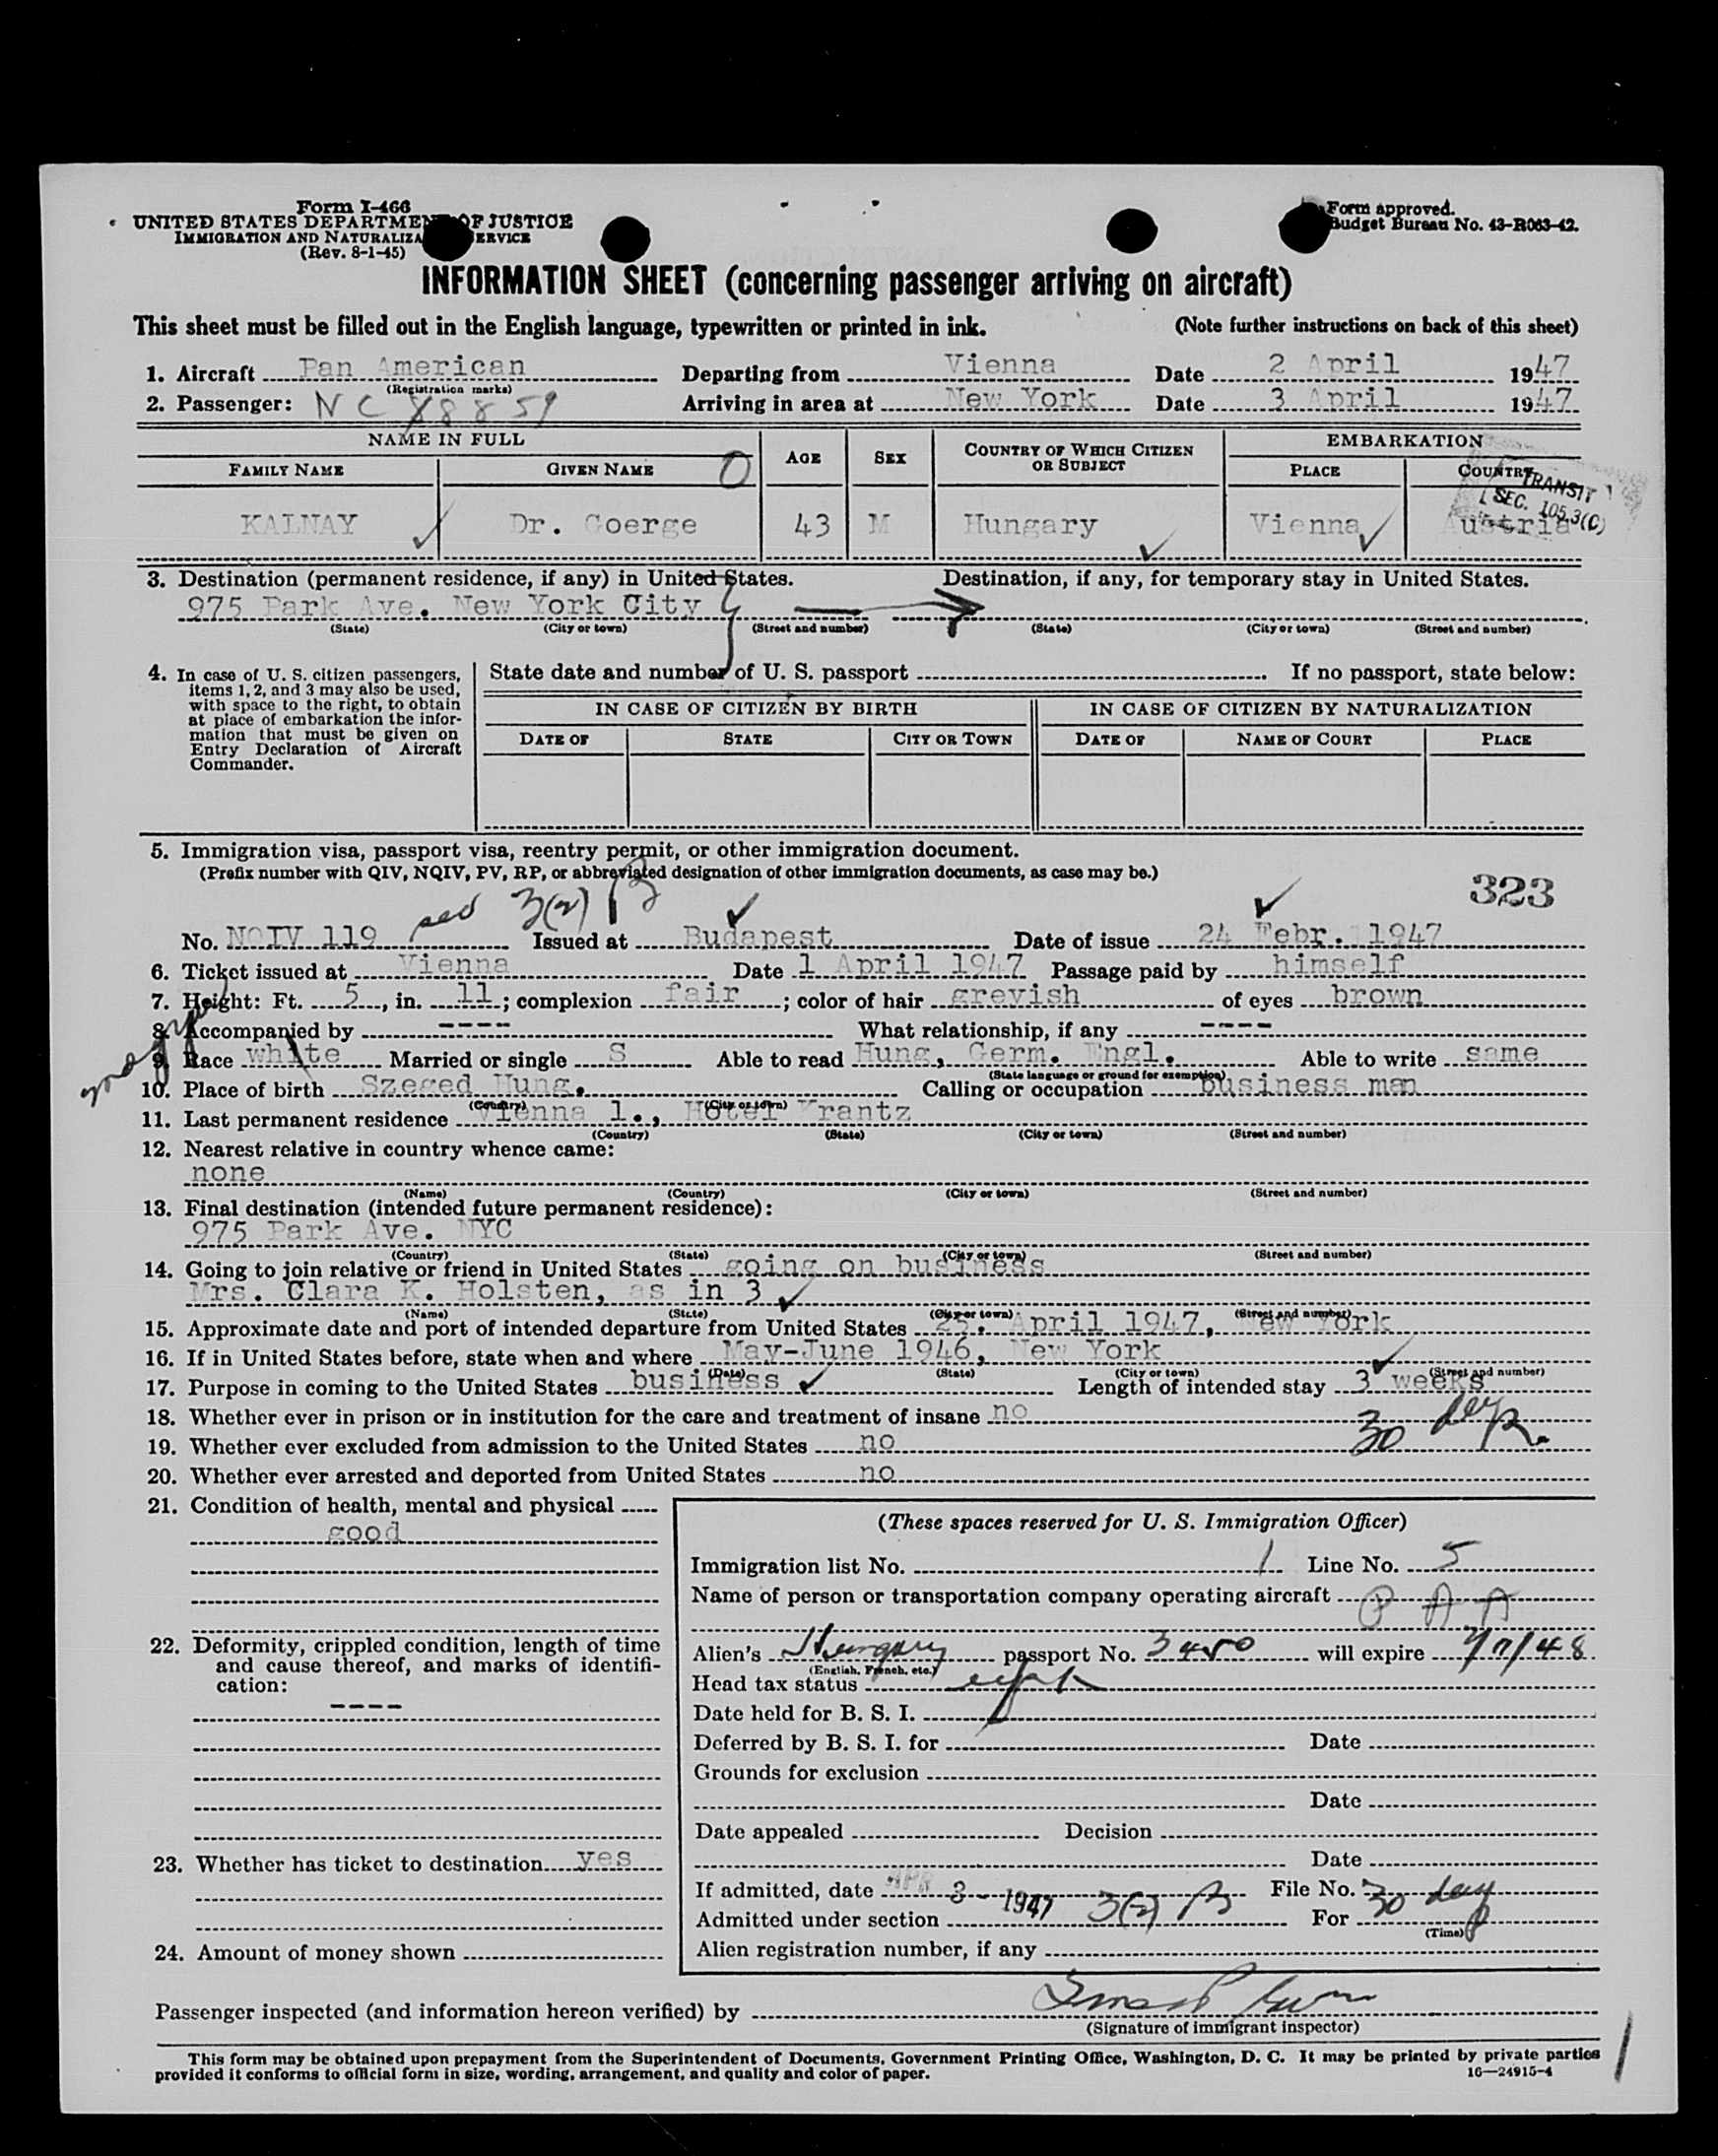 Form I-466
UNITED STATES DEPARTMENT OF JUSTICE
IMMIGRATION AND NATURALIZA ERVICE
(Rev. 8-1-45)
Form approved.
Budget Bureau No. 43-R063-42.
INFORMATION SHEET (concerning passenger arriving on aircraft)
This sheet must be filled out in the English language, typewritten or printed in ink. (Note further instructions on back of this sheet)
1. Aircraft Pan American Departing from Vienna Date 2 April 1947
(Registration marks)
2. Passenger: NC 88859 Arriving in area at New York Date 3 April 1947
NAME IN FULL AGE SEX COUNTRY OF WHICH CITIZEN OR SUBJECT EMBARKATION
FAMILY NAME GIVEN NAME O PLACE COUNTRY
TRANSIT
SEC. 105.3(C)
KALNAY Dr. Goerge 43 M Hungary Vienna Austria
3. Destination (permanent residence, if any) in United States. Destination, if any, for temporary stay in United States.
975 Park Ave. New York City
(State) (City or town) (Street and number) (State) (City or town) (Street and number)
4. In case of U. S. citizen passengers, items 1, 2, and 3 may also be used, with space to the right, to obtain at place of embarkation the information that must be given on Entry Declaration of Aircraft Commander.
State date and number of U. S. passport If no passport, state below:
IN CASE OF CITIZEN BY BIRTH IN CASE OF CITIZEN BY NATURALIZATION
DATE OF STATE CITY OR TOWN DATE OF NAME OF COURT PLACE
5. Immigration visa, passport visa, reentry permit, or other immigration document.
(Prefix number with QIV, NQIV, PV, RP, or abbreviated designation of other immigration documents, as case may be.)
323
3(2) B
No. NQIV 119 Issued at Budapest Date of issue 24 Febr. 1947
6. Ticket issued at Vienna Date 1 April 1947 Passage paid by himself
7. Height: Ft. 5, in. 11; complexion fair; color of hair greyish of eyes brown
8. Accompanied by ---- What relationship, if any ----
9. Race white Married or single S Able to read Hung, Germ. Engl. Able to write same
(State language or ground for exemption)
10. Place of birth Szeged Hung. Calling or occupation business man
(Country) (City or town)
11. Last permanent residence Vienna 1., Hotel Krantz
(Country) (State) (City or town) (Street and number)
12. Nearest relative in country whence came:
none
(Name) (Country) (City or town) (Street and number)
13. Final destination (intended future permanent residence):
975 Park Ave. NYC
(Country) (State) (City or town) (Street and number)
14. Going to join relative or friend in United States going on business
Mrs. Clara K. Holsten, as in 3
(Name) (State) (City or town) (Street and number)
15. Approximate date and port of intended departure from United States 25. April 1947, New York
16. If in United States before, state when and where May-June 1946, New York
(Date) (State) (City or town) (Street and number)
17. Purpose in coming to the United States business Length of intended stay 3 weeks
18. Whether ever in prison or in institution for the care and treatment of insane no
30 days
19. Whether ever excluded from admission to the United States no
20. Whether ever arrested and deported from United States no
21. Condition of health, mental and physical
good
22. Deformity, crippled condition, length of time and cause thereof, and marks of identification:
----
23. Whether has ticket to destination yes
24. Amount of money shown
(These spaces reserved for U. S. Immigration Officer)
Immigration list No. 1 Line No. 5
Name of person or transportation company operating aircraft P A A
Alien's Hungary passport No. 3450 will expire
(English, French, etc.)
Head tax status
Date held for B. S. I.
Deferred by B. S. I. for Date
Grounds for exclusion
Date
Date appealed Decision
Date
If admitted, date APR 3 - 1947 File No.
Admitted under section 3(2) B For 30 day
(Time)
Alien registration number, if any
Passenger inspected (and information hereon verified) by
(Signature of immigrant inspector)
This form may be obtained upon prepayment from the Superintendent of Documents, Government Printing Office, Washington, D. C. It may be printed by private parties
provided it conforms to official form in size, wording, arrangement, and quality and color of paper. 16—24915-4